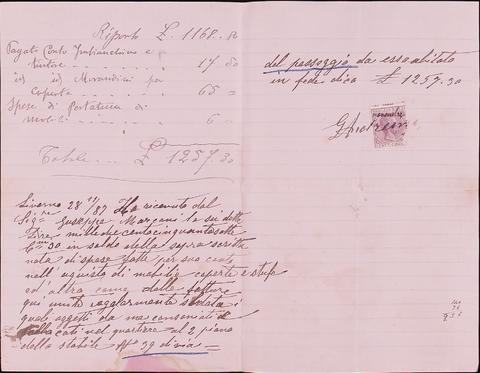 Riporto £. 1168. 80
Pagato Conto Imbianchino e
tintore . . . . . . . . 17 50
id id Morandini per
Coperte . . . . . . . 65 =
Spese di Portatura di
mobili . . . . . . . 6 =
Totale .... £ 1257. 30
Livorno 28 11/87 Ho ricevuto dal
Sigre Giuseppe Marzani le sudette
Lire mille duecentocinquantasette
Cmi 30 in saldo della sopra scritta
nota di spese fatte per suo conto
nell'acquisto di mobilie coperte e stufa
ed altro come dalle fatture
qui unite regolarmente saldate i
quali oggetti da me consegnati e
collocati nel quartiere al 2 piano
dello stabile No 39 di via =
del passeggio da esso abitato
in fede dico £ 1257.30